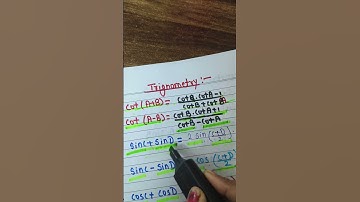 Trignometry:-
cot (A+B) = cotA.cotB-1 / cotB+cotA
cot (A-B) = cotA.cotB+1 / cotB-cotA
sinC+sinD = 2 sin (C+D / 2)
sinC-sinD cos (C+D
cosC + cosD